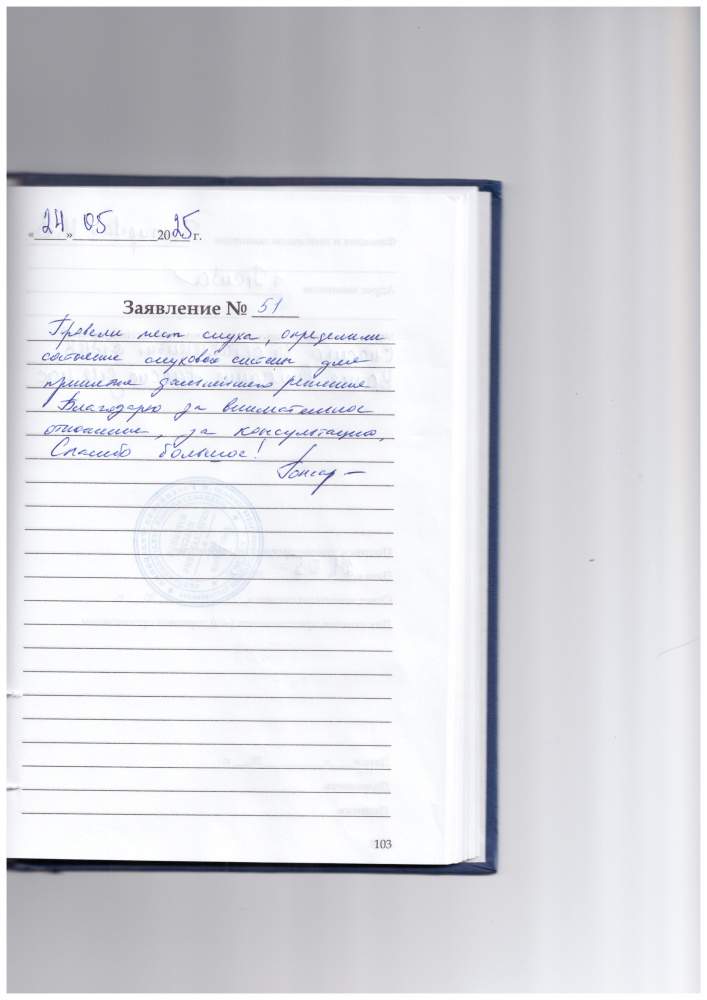 «24» 05 2025 г.
Заявление № 51
Провели тест слуха, определили
состояние слуховой системы для
принятия дальнейшего решения
Благодарю за внимательное
отношение, за консультацию,
Спасибо большое!
103